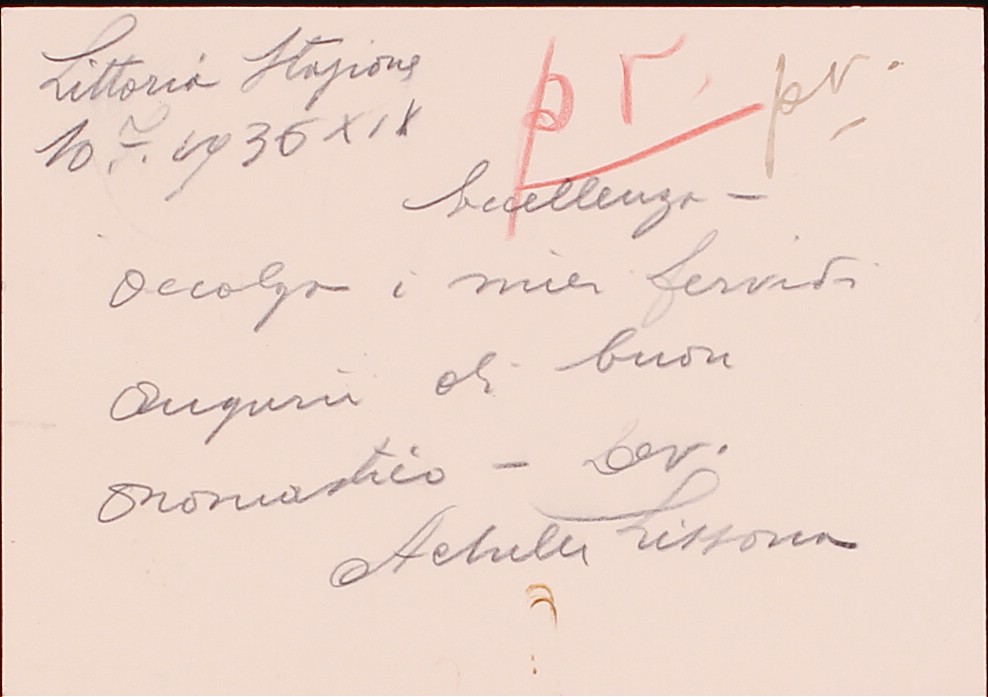 Littoria Stazione
pr. pr.
10 1936 XIX
Eccellenza -
accolga i miei fervidi
auguri di buon
onomastico - Dev.
Achille Lissona